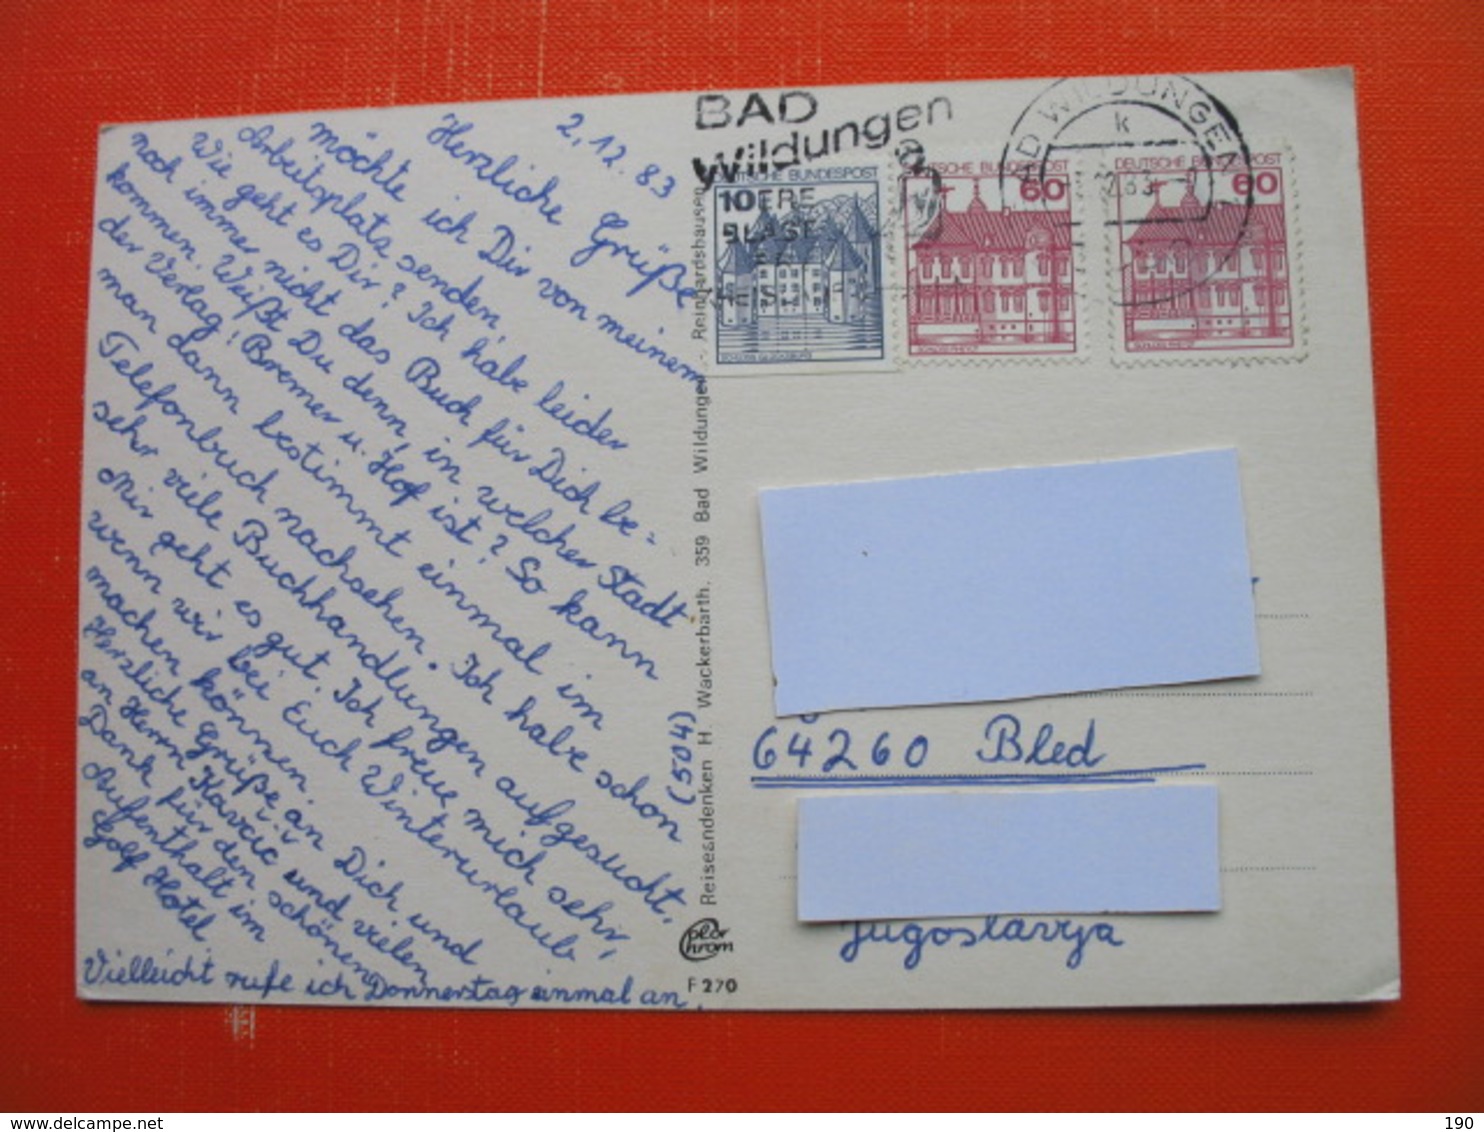 2.12.83
Herzliche Grüße
möchte ich Dir von meinem
Arbeitsplatz senden.
Wie geht es Dir? Ich habe leider
noch immer nicht das Buch für Dich be=
kommen. Weißt Du denn, in welcher Stadt
der Verlag "Bremer u. Hof ist? So kann
man dann bestimmt einmal im
Telefonbuch nachsehen. Ich habe schon
sehr viele Buchhandlungen aufgesucht.
Mir geht es gut. Ich freue mich sehr,
wenn wir bei Euch Winterurlaub
machen können.
Herzliche Grüße an Dich und
an Herrn Kavčič und vielen
Dank für den schönen
Aufenthalt im
Golf Hotel.
Vielleicht rufe ich Donnerstag einmal an.
Reiseandenken H. Wackerbarth. 359 Bad Wildungen - Reinhardshausen
(504)
Color
chrom
F 270
BAD
Wildungen
DEUTSCHE BUNDESPOST
10
DEUTSCHE BUNDESPOST
60
DEUTSCHE BUNDESPOST
60
BAD WILDUNGEN
k
64260 Bled
Jugoslavija
190
delcampe.net